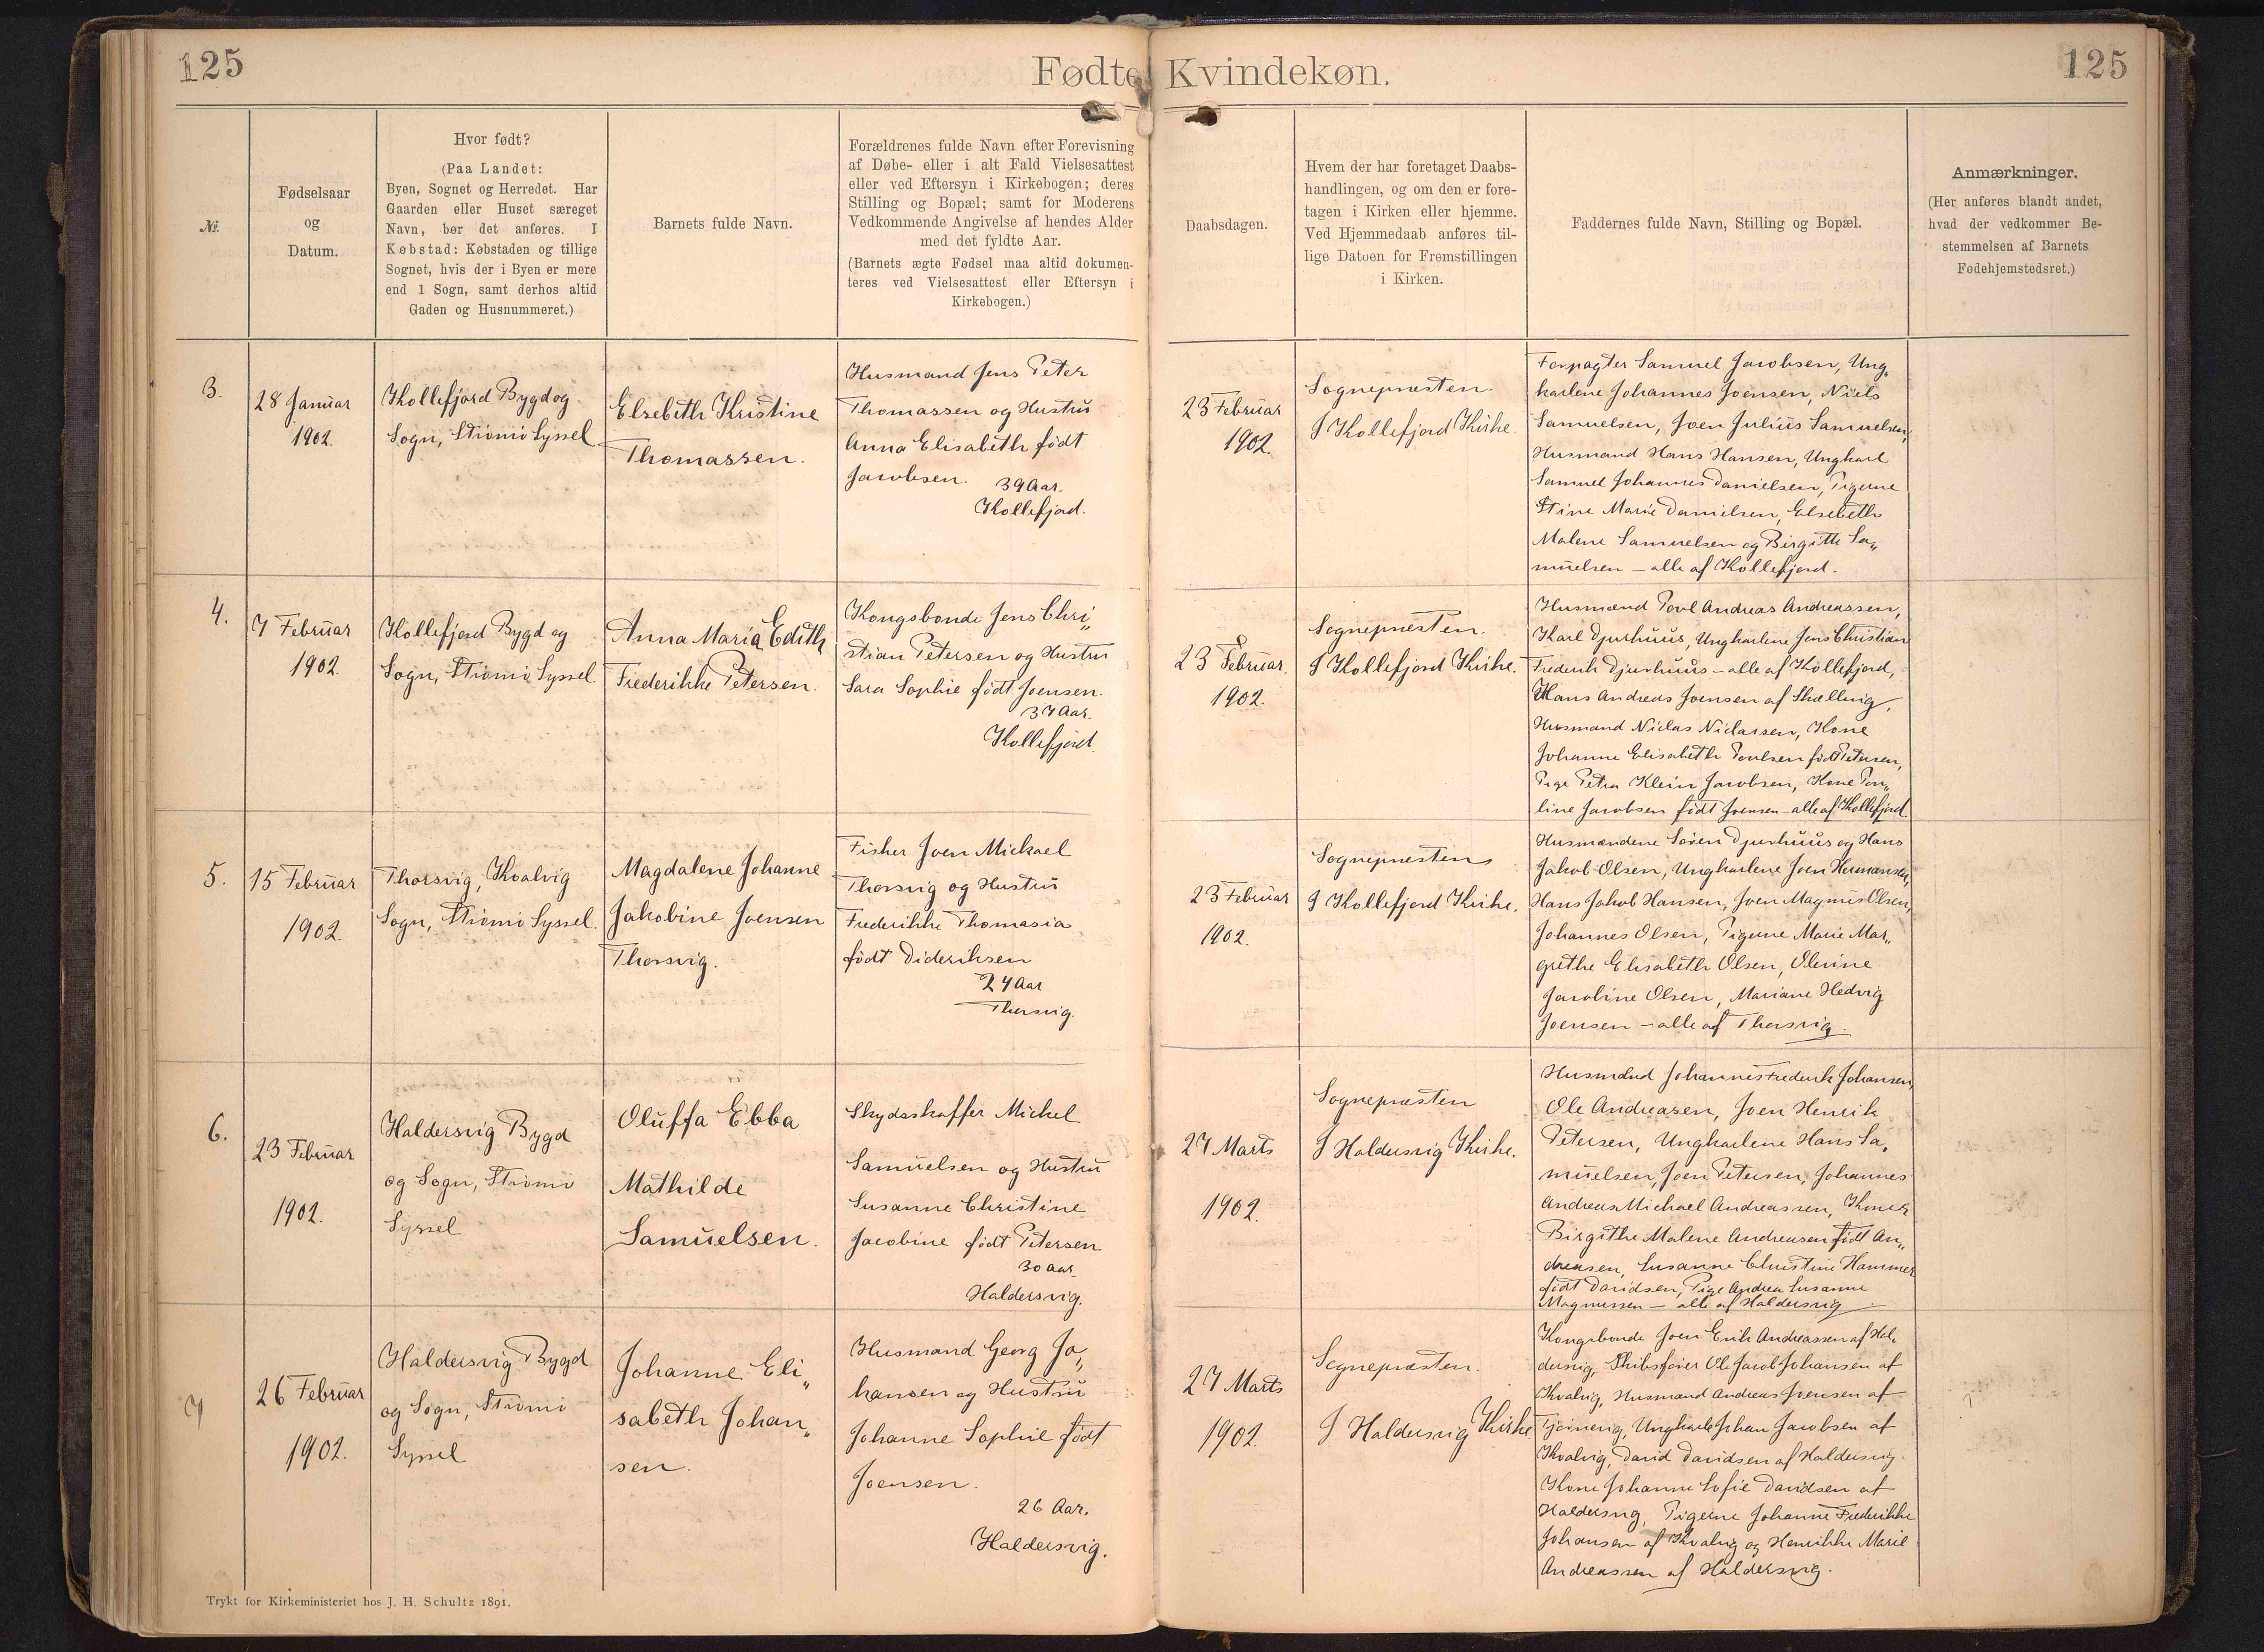 125
Fødte Kvindekøn.
125
№.
Fødselsaar
og
Datum.
Hvor født?
(Paa Landet:
Byen, Sognet og Herredet. Har
Gaarden eller Huset særeget
Navn, bør det anføres. I
Købstad: Købstaden og tillige
Sognet, hvis der i Byen er mere
end 1 Sogn, samt derhos altid
Gaden og Husnummeret.)
Barnets fulde Navn.
Forældrenes fulde Navn efter Forevisning
af Døbe- eller i alt Fald Vielsesattest
eller ved Eftersyn i Kirkebogen; deres
Stilling og Bopæl; samt for Moderens
Vedkommende Angivelse af hendes Alder
med det fyldte Aar.
(Barnets ægte Fødsel maa altid dokumen-
teres ved Vielsesattest eller Eftersyn i
Kirkebogen.)
Daabsdagen.
Hvem der har foretaget Daabs-
handlingen, og om den er fore-
tagen i Kirken eller hjemme.
Ved Hjemmedaab anføres til-
lige Datoen for Fremstillingen
i Kirken.
Faddernes fulde Navn, Stilling og Bopæl.
Anmærkninger.
(Her anføres blandt andet,
hvad der vedkommer Be-
stemmelsen af Barnets
Fødehjemstedsret.)
3.
28 Januar
1902.
Kollefjord Bygd og
Sogn, Strömö Syssel
Elsebeth Kristine
Thomassen.
Husmand Jens Peter
Thomassen og Hustru
Anna Elisabeth født
Jacobsen. 39 Aar.
Kollefjord.
23 Februar
1902.
Sognepræsten.
I Kollefjord Kirke.
Forpagter Samuel Jacobsen, Ung„
karlene Johannes Joensen, Niels
Samuelsen, Joen Julius Samuelsen,
Husmand Hans Hansen, Ungkarl
Samuel Johannes Danielsen, Pigerne
Stine Marie Danielsen, Elsebeth
Malene Samuelsen og Birgitte Sa„
muelsen – alle af Kollefjord.
4.
7 Februar
1902.
Kollefjord Bygd og
Sogn, Strömö Syssel.
Anna Maria Edith
Frederikke Petersen.
Kongsbonde Jens Chri„
stian Petersen og Hustru
Sara Sophie født Joensen.
37 Aar.
Kollefjord.
23 Februar.
1902.
Sognepræsten.
I Kollefjord Kirke.
Husmænd Poul Andreas Andreassen,
Karl Djurhuus, Ungkarlene Jens Christian
Frederik Djurhuus – alle af Kollefjord,
Hans Andreas Joensen af Skælling,
Husmand Niclas Niclassen, Kone
Johanne Elisabeth Poulsen født Petersen,
Pige Petra Klein Jacobsen, Kone Pou„
line Jacobsen født Joensen – alle af Kollefjord.
5.
15 Februar
1902.
Thorsvig, Kvalvig
Sogn, Strömö Syssel.
Magdalene Johanne
Jakobine Joensen
Thorsvig.
Fisker Joen Mickael
Thorsvig og Hustru
Frederikke Thomasia
født Dideriksen
24 Aar
Thorsvig.
23 Februar
1902.
Sognepræsten
I Kollefjord Kirke.
Husmændene Sören Djurhuus og Hans
Jakob Olsen, Ungkarlene Joen Hermansen,
Hans Jakob Hansen, Joen Magnus Olsen,
Johannes Olsen, Pigerne Marie Mar„
grethe Elisabeth Olsen, Olevine
Jacobine Olsen, Mariane Hedvig
Joensen – alle af Thorsvig.
6.
23 Februar
1902.
Haldersvig Bygd
og Sogn, Strömö
Syssel
Oluffa Ebba
Mathilde
Samuelsen.
Skydsskaffer Michel
Samuelsen og Hustru
Susanne Christine
Jacobine født Petersen
30 Aar.
Haldersvig.
27 Marts
1902.
Sognepræsten
I Haldersvig Kirke.
Husmænd Johannes Frederik Johansen,
Ole Andreasen, Joen Henrik
Petersen, Ungkarlene Hans Sa„
muelsen, Joen Petersen, Johannes
Andreas Michael Andreassen, Koner
Birgithe Malene Andreasen født An„
dreasen, Susanne Christine Hammer
født Davidsen, Pige Andrea Susanne
Magnussen – alle af Haldersvig.
7
26 Februar
1902.
Haldersvig Bygd
og Sogn, Strömö
Syssel
Johanne Eli„
sabeth Johan„
sen.
Husmand Georg Jo„
hansen og Hustru
Johanne Sophie født
Joensen.
26 Aar.
Haldersvig.
27 Marts
1902.
Sognepræsten.
I Haldersvig Kirke
Kongsbonde Joen Erik Andreassen af Hal„
dersvig, Skibsfører Ole Jacob Johansen af
Kvalvig, Husmand Andreas Joensen af
Tjörnevig, Ungkarle Johan Jacobsen af
Kvalvig, David Davidsen af Haldersvig.
Kone Johanne Sofie Davidsen af
Haldersvig, Pigerne Johanne Frederikke
Johansen af Kvalvig og Henrikke Marie
Andreassen af Haldersvig.
Trykt for Kirkeministeriet hos J. H. Schultz 1891.